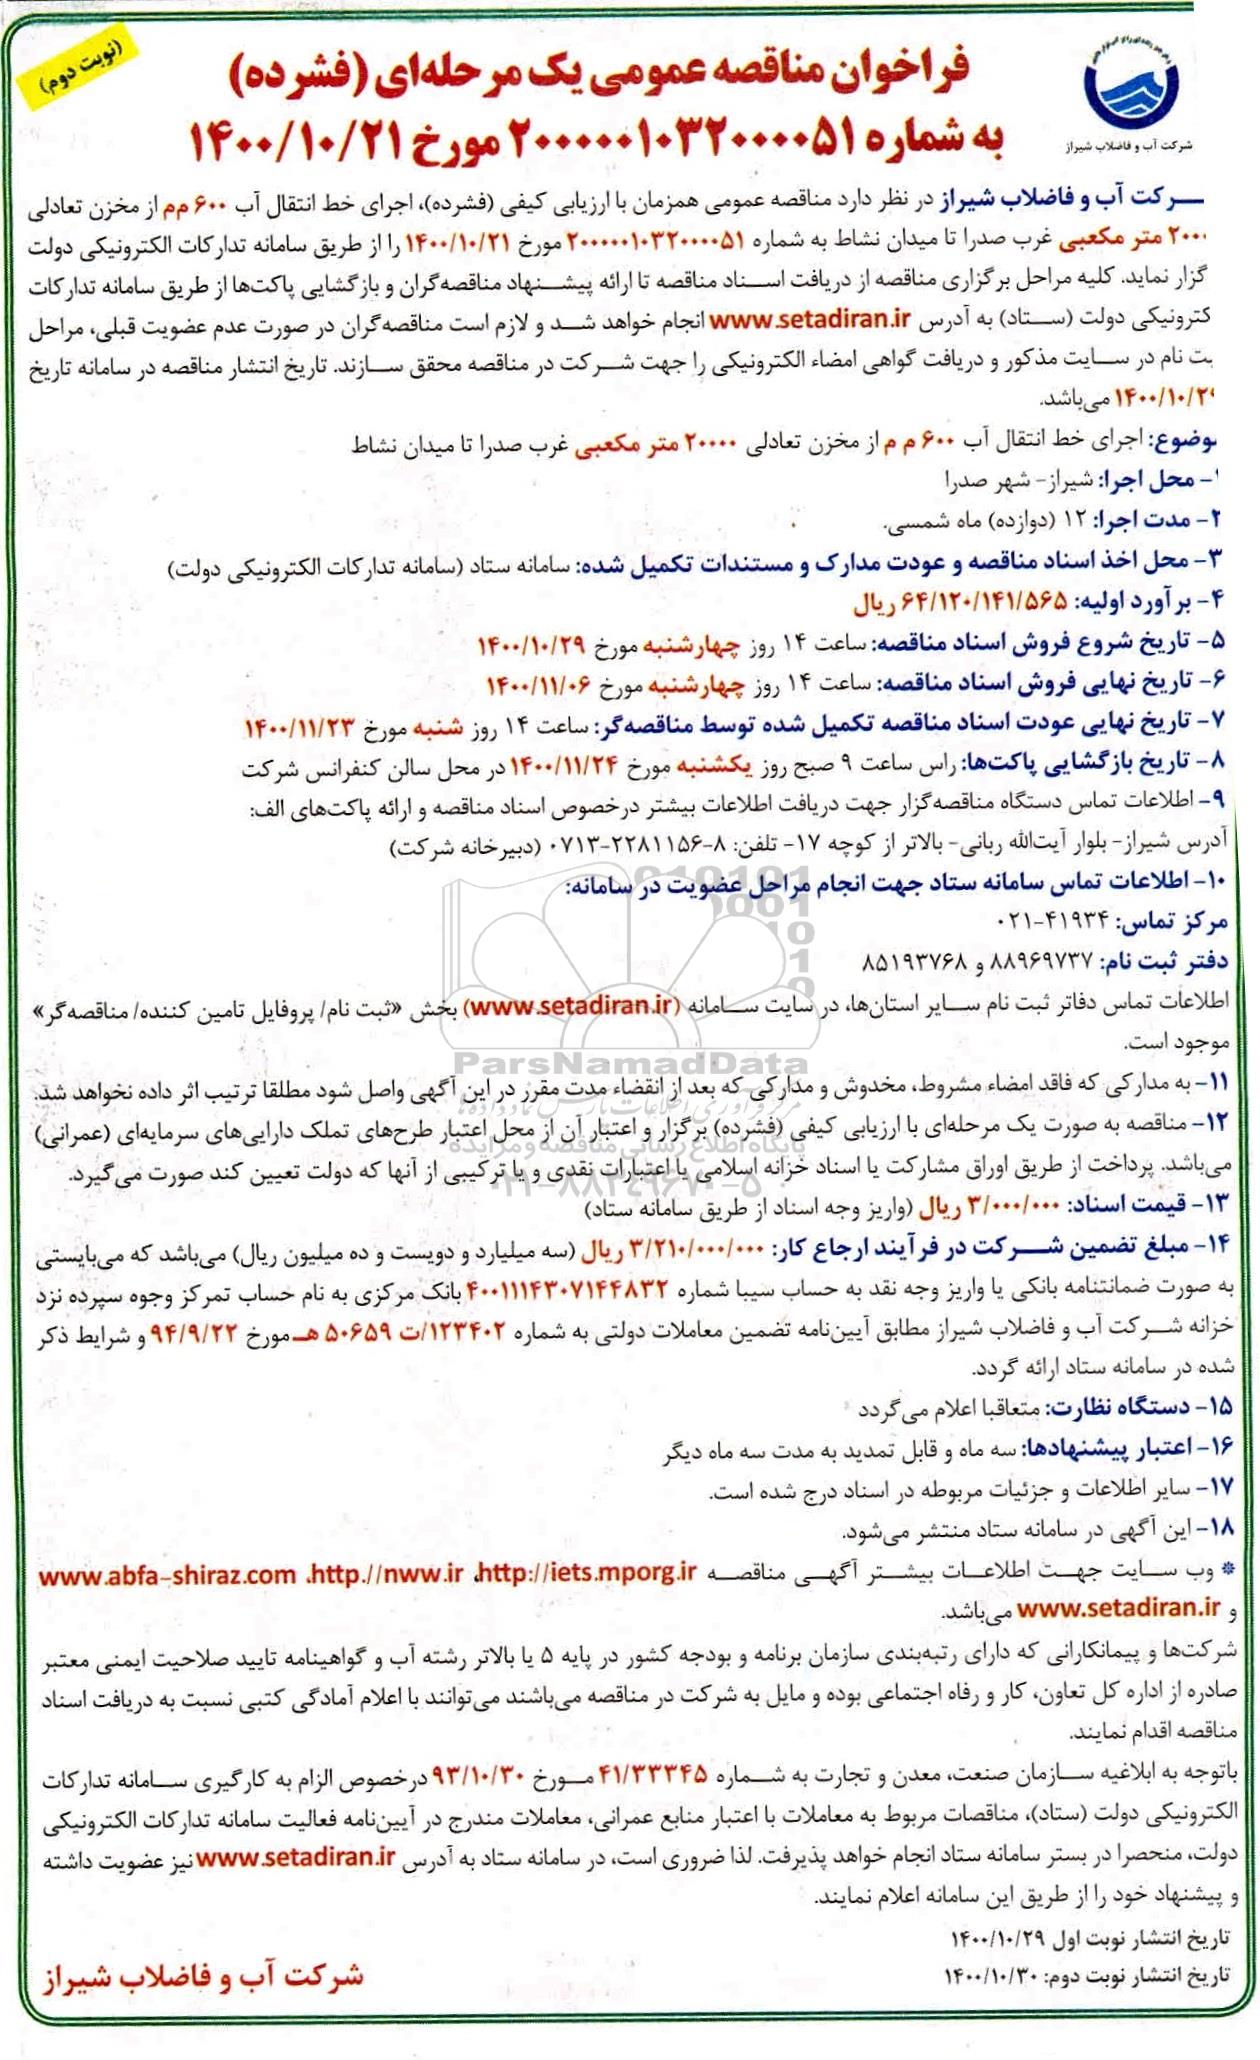 (نوبت دوم)
شرکت آب و فاضلاب شیراز
فراخوان مناقصه عمومی یک مرحله‌ای (فشرده)
به شماره ۲۰۰۰۰۰۱۰۳۲۰۰۰۰۵۱ مورخ ۱۴۰۰/۱۰/۲۱
ـــرکت آب و فاضلاب شیراز در نظر دارد مناقصه عمومی همزمان با ارزیابی کیفی (فشرده)، اجرای خط انتقال آب ۶۰۰ م‌م از مخزن تعادلی
۲۰۰۰ متر مکعبی غرب صدرا تا میدان نشاط به شماره ۲۰۰۰۰۰۱۰۳۲۰۰۰۰۵۱ مورخ ۱۴۰۰/۱۰/۲۱ را از طریق سامانه تدارکات الکترونیکی دولت
گزار نماید. کلیه مراحل برگزاری مناقصه از دریافت اسـناد مناقصه تا ارائه پیشـنهاد مناقصه‌گران و بازگشایی پاکت‌ها از طریق سامانه تدارکات
کترونیکی دولت (ســتاد) به آدرس www.setadiran.ir انجام خواهد شــد و لازم است مناقصه‌گران در صورت عدم عضویت قبلی، مراحل
بت نام در سـایت مذکور و دریافت گواهی امضاء الکترونیکی را جهت شــرکت در مناقصه محقق ســازند. تاریخ انتشار مناقصه در سامانه تاریخ
۱۴۰۰/۱۰/۲۹ می‌باشد.
موضوع: اجرای خط انتقال آب ۶۰۰ م م از مخزن تعادلی ۲۰۰۰۰ متر مکعبی غرب صدرا تا میدان نشاط
۱- محل اجرا: شیراز- شهر صدرا
۲- مدت اجرا: ۱۲ (دوازده) ماه شمسی.
۳- محل اخذ اسناد مناقصه و عودت مدارک و مستندات تکمیل شده: سامانه ستاد (سامانه تدارکات الکترونیکی دولت)
۴- برآورد اولیه: ۶۴/۱۲۰/۱۴۱/۵۶۵ ریال
۵- تاریخ شروع فروش اسناد مناقصه: ساعت ۱۴ روز چهارشنبه مورخ ۱۴۰۰/۱۰/۲۹
۶- تاریخ نهایی فروش اسناد مناقصه: ساعت ۱۴ روز چهارشنبه مورخ ۱۴۰۰/۱۱/۰۶
۷- تاریخ نهایی عودت اسناد مناقصه تکمیل شده توسط مناقصه‌گر: ساعت ۱۴ روز شنبه مورخ ۱۴۰۰/۱۱/۲۳
۸- تاریخ بازگشایی پاکت‌ها: راس ساعت ۹ صبح روز یکشنبه مورخ ۱۴۰۰/۱۱/۲۴ در محل سالن کنفرانس شرکت
۹- اطلاعات تماس دستگاه مناقصه‌گزار جهت دریافت اطلاعات بیشتر درخصوص اسناد مناقصه و ارائه پاکت‌های الف:
آدرس شیراز- بلوار آیت‌الله ربانی- بالاتر از کوچه ۱۷- تلفن: ۸-۲۲۸۱۱۵۶-۰۷۱۳ (دبیرخانه شرکت)
۱۰- اطلاعات تماس سامانه ستاد جهت انجام مراحل عضویت در سامانه:
مرکز تماس: ۴۱۹۳۴-۰۲۱
دفتر ثبت نام: ۸۸۹۶۹۷۳۷ و ۸۵۱۹۳۷۶۸
اطلاعات تماس دفاتر ثبت نام ســایر استان‌ها، در سایت ســامانه (www.setadiran.ir) بخش «ثبت نام/ پروفایل تامین کننده/ مناقصه‌گر»
موجود است.
ParsNamadData
۱۱- به مدارکی که فاقد امضاء مشروط، مخدوش و مدارکی که بعد از انقضاء مدت مقرر در این آگهی واصل شود مطلقا ترتیب اثر داده نخواهد شد.
۱۲- مناقصه به صورت یک مرحله‌ای با ارزیابی کیفی (فشرده) برگزار و اعتبار آن از محل اعتبار طرح‌های تملک دارایی‌های سرمایه‌ای (عمرانی)
پایگاه اطلاع رسانی مناقصه و مزایده
می‌باشد. پرداخت از طریق اوراق مشارکت یا اسناد خزانه اسلامی یا اعتبارات نقدی و یا ترکیبی از آنها که دولت تعیین کند صورت می‌گیرد.
۰۲۱-۸۸۳۴۹۶۷۰-۵
۱۳- قیمت اسناد: ۳/۰۰۰/۰۰۰ ریال (واریز وجه اسناد از طریق سامانه ستاد)
۱۴- مبلغ تضمین شــرکت در فرآیند ارجاع کار: ۳/۲۱۰/۰۰۰/۰۰۰ ریال (سه میلیارد و دویست و ده میلیون ریال) می‌باشد که می‌بایستی
به صورت ضمانتنامه بانکی یا واریز وجه نقد به حساب سیبا شماره ۴۰۰۱۱۱۴۳۰۷۱۴۴۸۳۲ بانک مرکزی به نام حساب تمرکز وجوه سپرده نزد
خزانه شــرکت آب و فاضلاب شیراز مطابق آیین‌نامه تضمین معاملات دولتی به شماره ۱۲۳۴۰۲/ت ۵۰۶۵۹ هـ مورخ ۹۴/۹/۲۲ و شرایط ذکر
شده در سامانه ستاد ارائه گردد.
۱۵- دستگاه نظارت: متعاقبا اعلام می‌گردد
۱۶- اعتبار پیشنهادها: سه ماه و قابل تمدید به مدت سه ماه دیگر
۱۷- سایر اطلاعات و جزئیات مربوطه در اسناد درج شده است.
۱۸- این آگهی در سامانه ستاد منتشر می‌شود.
* وب ســایت جهــت اطلاعــات بیشــتر آگهــی مناقصــه http://iets.mporg.ir، http.//nww.ir، www.abfa-shiraz.com
و www.setadiran.ir می‌باشد.
شرکت‌ها و پیمانکارانی که دارای رتبه‌بندی سازمان برنامه و بودجه کشور در پایه ۵ یا بالاتر رشته آب و گواهینامه تایید صلاحیت ایمنی معتبر
صادره از اداره کل تعاون، کار و رفاه اجتماعی بوده و مایل به شرکت در مناقصه می‌باشند می‌توانند با اعلام آمادگی کتبی نسبت به دریافت اسناد
مناقصه اقدام نمایند.
باتوجه به ابلاغیه ســازمان صنعت، معدن و تجارت به شــماره ۴۱/۳۳۳۴۵ مــورخ ۹۳/۱۰/۳۰ درخصوص الزام به کارگیری ســامانه تدارکات
الکترونیکی دولت (ستاد)، مناقصات مربوط به معاملات با اعتبار منابع عمرانی، معاملات مندرج در آیین‌نامه فعالیت سامانه تدارکات الکترونیکی
دولت، منحصرا در بستر سامانه ستاد انجام خواهد پذیرفت. لذا ضروری است، در سامانه ستاد به آدرس www.setadiran.ir نیز عضویت داشته
و پیشنهاد خود را از طریق این سامانه اعلام نمایند.
تاریخ انتشار نوبت اول ۱۴۰۰/۱۰/۲۹
تاریخ انتشار نوبت دوم: ۱۴۰۰/۱۰/۳۰
شرکت آب و فاضلاب شیراز